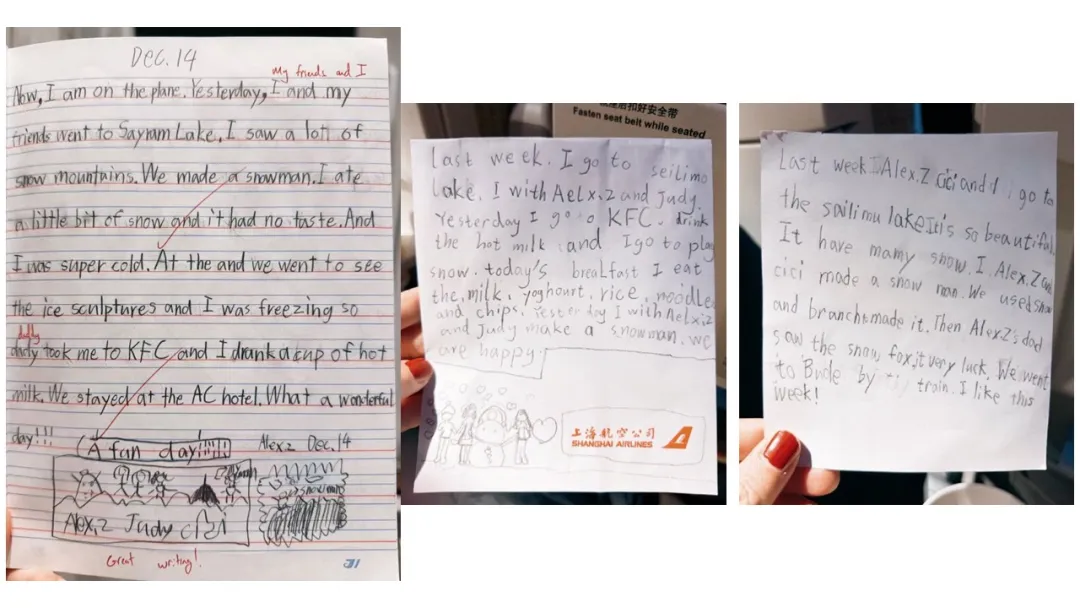 Dec. 14
My friends and I
Now, I am on the plane. Yesterday, I and my
friends went to Sayram Lake. I saw a lot of
snow mountains. We made a snowman. I ate
a little bit of snow and it had no taste. And
I was super cold. At the and we went to see
the ice sculptures and I was freezing so
daddy
dady took me to KFC and I drank a cup of hot
milk. We stayed at the AC hotel. What a wonderful
day!!!
(A fun day!!!!!
Alex.z Dec. 14
Alex.z Judy cici
Great writing!
扣好安全带
Fasten seat belt while seated
Last week. I go to seilimo
Lake. I with AeLx.Z and Judy.
Yesterday I go to KFC. drink
the hot milk and I go to play
snow. today's breakfast I eat
the milk. yoghourt. rice. noodle
and chips. Yesterday I with AeLx.Z
and Judy make a snowman. we
are happy.
上海航空公司
SHANGHAI AIRLINES
Last week I Alex.Z cici and I go to
the sailimu lake. It's so beautiful.
It have mamy snow. I. Alex.Z and
cici made a snow man. We used snow
and branch made it. Then Alex.Z's dad
saw the snow fox. it very luck. We went
to Bude by train. I like this
week!